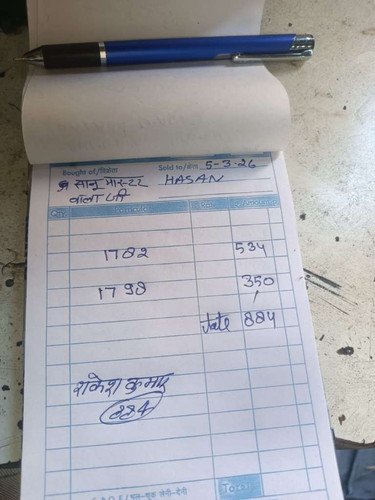 Bought of/विक्रेता Sold to/क्रेता 5-3-26
सानू मास्टर HASAN
वाला जी
Qty. Particulars Rate Amount
1782 534
1798 350
Tote 884
राकेश कुमार
884
E.&.O.E./भूल-चूक लेनी-देनी Total